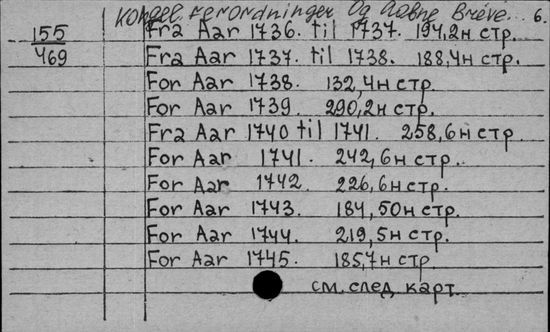 Kongel. Forordninger og Aabne Breve... 6.
155
469
Fra Aar 1736. til 1737. 194,2н стр.
Fra Aar 1737. til 1738. 188,4н стр.
For Aar 1738. 132,4н стр.
For Aar 1739. 290,2н стр.
Fra Aar 1740 til 1741. 258,6н стр
For Aar 1741. 242,6н стр.
For Aar 1742. 226,6н стр.
For Aar 1743. 184,50н стр.
For Aar 1744. 219,5н стр.
For Aar 1745. 185,7н стр
см. след. карт.